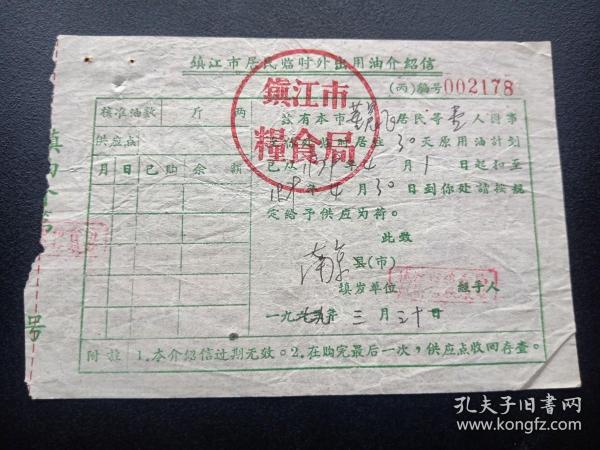 鎮江市居民临时外出用油介紹信
(丙)編号002178
鎮江市
糧食局
核准油数 斤 两
供应点
月 日 已购 余额
兹有本市 居民等壹人因事
临时居住30天原用油计划
已从 年4月1日起扣至
年4月30日到你处請按規
定給予供应为荷。
此致
南京县(市)
填发单位 經手人
一九 年三月三十日
号
附註 1.本介紹信过期无效。2.在购完最后一次,供应点收回存查。
孔夫子旧书网
www.kongfz.com